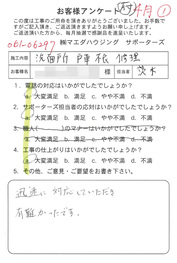 お客様アンケート
この度は工事のご用命を頂きありがとうございました。お手数で
すがご記入頂き、ご返送頂きますようお願い申し上げます。
ご返送頂いた方から、毎月抽選で感謝品を進呈いたします。
㈱マエダハウジング サポーターズ
施工内容 洗面所 修理
お客様名 様 担当者 茨木
1. 電話の対応はいかがでしたでしょうか?
a. 大変満足 b. 満足 c. やや不満 d. 不満
2. サポーターズ担当者の応対はいかがでしたでしょうか?
a. 大変満足 b. 満足 c. やや不満 d. 不満
3. 職人( )のマナーはいかがでしたでしょうか?
a. 大変満足 b. 満足 c. やや不満 d. 不満
4. 工事の仕上がりはいかがでしたでしょうか?
a. 大変満足 b. 満足 c. やや不満 d. 不満
5. その他、ご意見・ご要望をお書き下さい。
迅速に対応していただき
有難かったです。